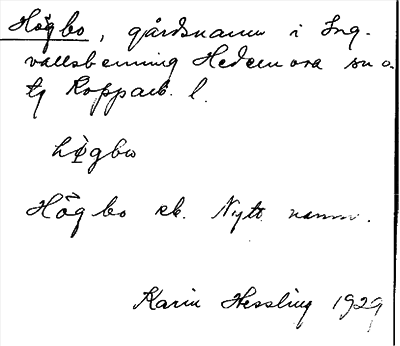 Högbo, gårdsnamn i Ing-
vallsbenning Hedemora sn o.
tg Kopparb. l.
högbo
Högbo eb. Nytt namn.
Karin Hessling 1929